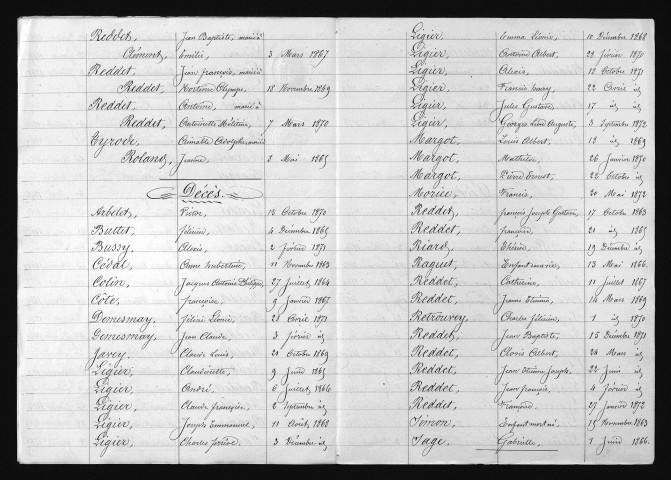 Reddet, Jean Baptiste, marié à
Clément, Emilie, 3 Mars 1867
Reddet, Jean François, marié à
Reddet, Hortense Olympe, 18 Novembre 1869
Reddet, Antoine, marié à
Reddet, Antoinette Mélitine, 7 Mars 1870
Tyrode, Aimable Adolphe, marié
Roland, Jeanne, 3 Mai 1865
Décès.
Arbelet, Victor, 15 Octobre 1870
Buttet, Félicien, 4 Décembre 1865
Bussy, Alexis, 2 Février 1871
Cédal, Anne Hubertine, 11 Novembre 1863
Colin, Jacques Antoine Philippe, 27 Juillet 1864
Côte, Françoise, 9 Janvier 1867
Demesmay, Félicie Léonie, 28 Avril 1871
Demesmay, Jean Claude, 3 Février id
Javey, Claude Louis, 20 Octobre 1869
Ligier, Claudinette, 9 Juin 1865
Ligier, André, 6 Juillet 1866
Ligier, Claude François, 2 Septembre id
Ligier, Joseph Emmanuel, 11 Août 1868
Ligier, Charles 3 Décembre id
Ligier, Emma Léonie, 10 Décembre 1868
Ligier, Antoine Albert, 29 Février 1870
Ligier, Alexis, 18 Octobre 1871
Ligier, Francis 22 Avril id
Ligier, Jules Gustave, 17 id id
Ligier, Georges Léon Auguste, 3 Septembre 1872
Margot, Louis Albert, 13 id 1869
Margot, Mathilde, 26 Janvier 1870
Margot, Pierre Ernest, 22 Octobre id
Morice, Francis, 20 Mai 1872
Reddet, François Joseph Gustave, 17 Octobre 1863
Reddet, Françoise, 21 id 1865
Riard, Thérèse, 19 Décembre id
Raguet, Enfant sans vie, 13 Mai 1866.
Reddet, Catherine, 11 Juillet 1867
Reddet, Jeanne Etiennette, 14 Mars 1869
Retrouvey, Charles Félicien, 1 id 1870
Reddet, Jean Baptiste, 15 Décembre 1871
Reddet, Clovis Albert, 24 Mars id
Reddet, Jean Etienne Joseph, 22 Juin id
Reddet, Jean François, 4 Février id
Reddet, Framond, 27 Janvier 1872
Simon, Enfant mort né, 15 Novembre 1863
Sage, Gabrielle, 1 Juin 1866.